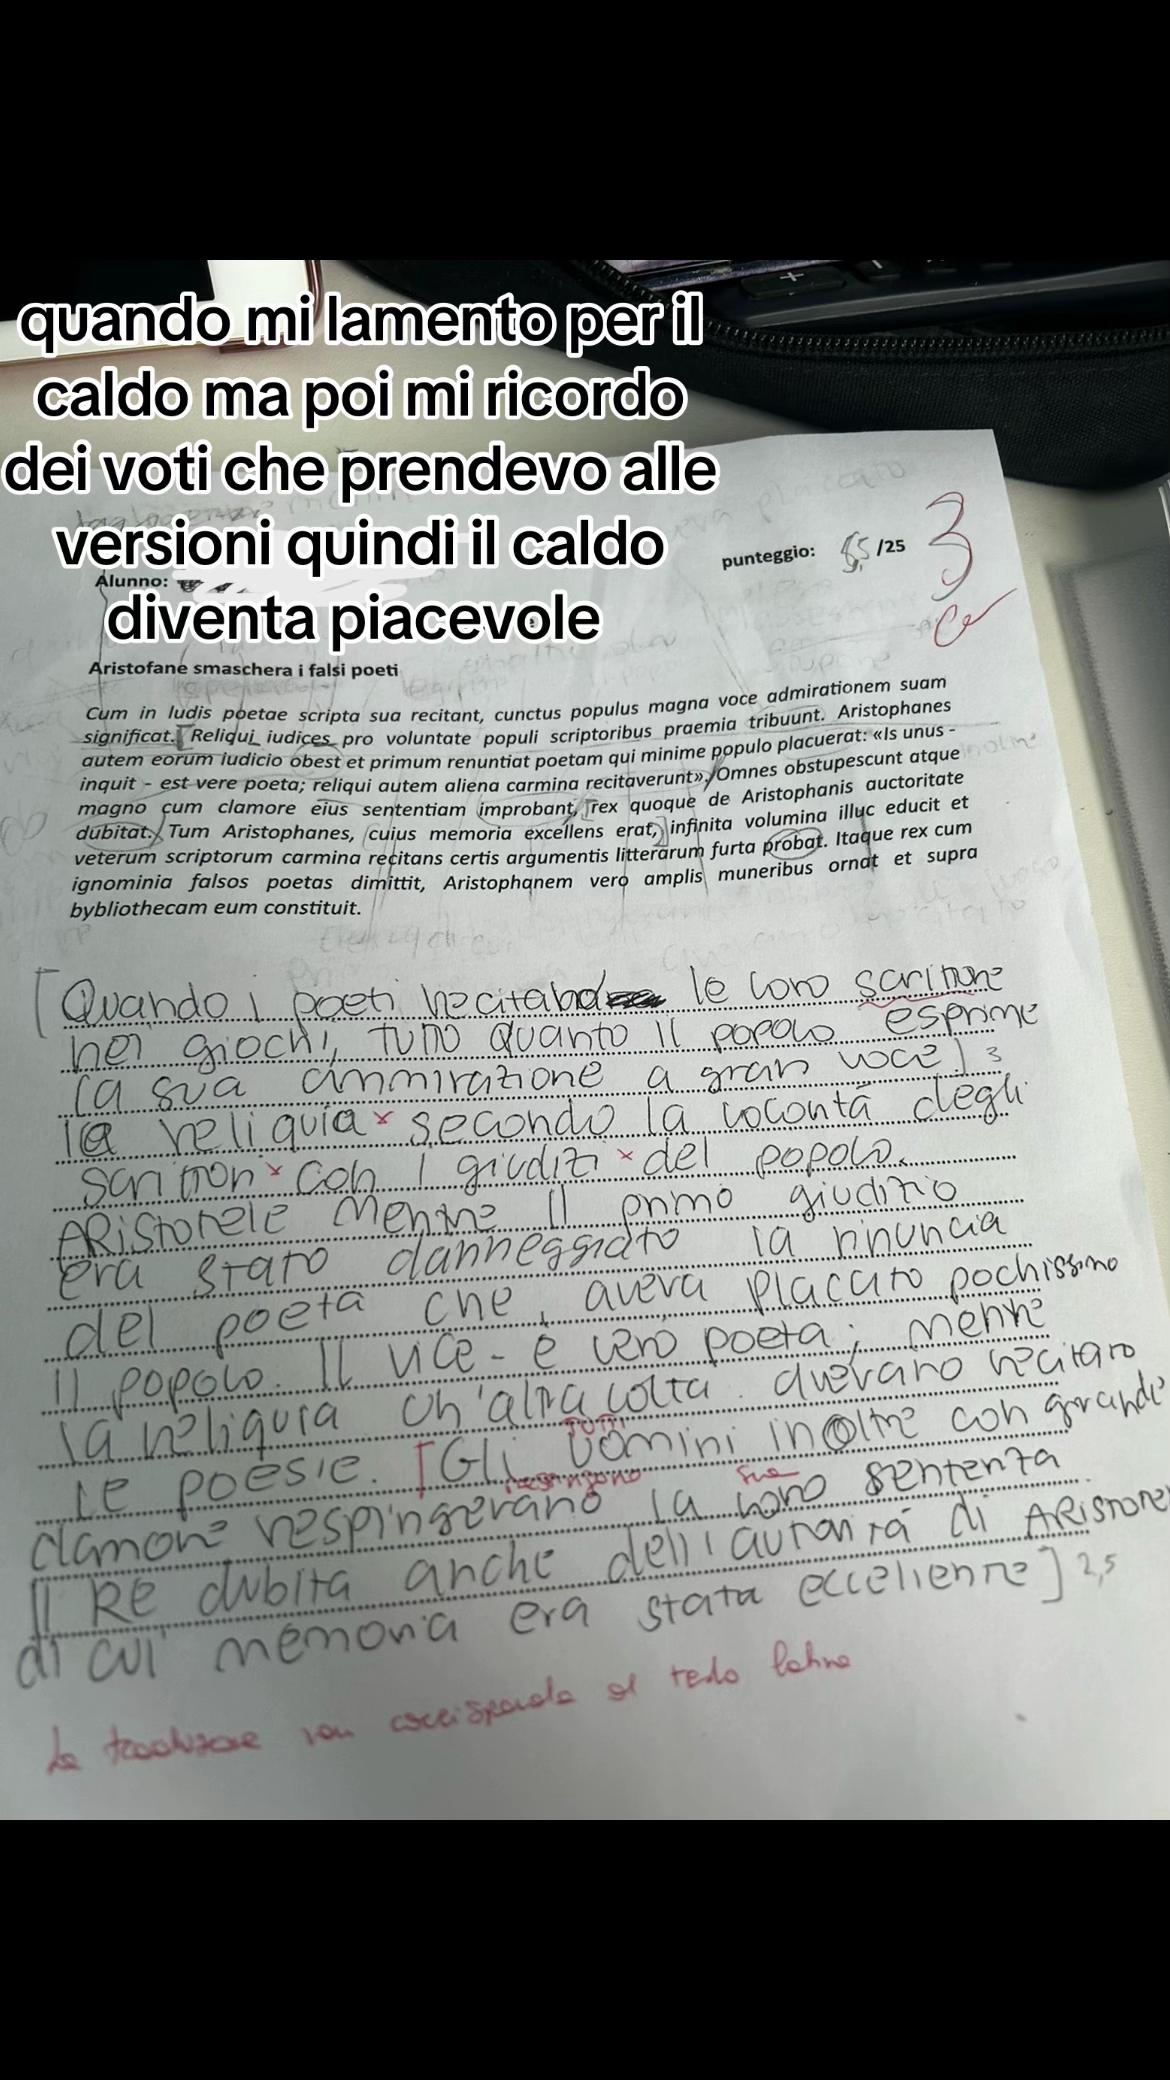 quando mi lamento per il
caldo ma poi mi ricordo
dei voti che prendevo alle
versioni quindi il caldo
diventa piacevole
Alunno:
punteggio: 5,5 /25
3
Aristofane smaschera i falsi poeti
Cum in ludis poetae scripta sua recitant, cunctus populus magna voce admirationem suam
significat. Reliqui iudices pro voluntate populi scriptoribus praemia tribuunt. Aristophanes
autem eorum iudicio obest et primum renuntiat poetam qui minime populo placuerat: «Is unus -
inquit - est vere poeta; reliqui autem aliena carmina recitaverunt». Omnes obstupescunt atque
magno cum clamore eius sententiam improbant, rex quoque de Aristophanis auctoritate
dubitat. Tum Aristophanes, cuius memoria excellens erat, infinita volumina illuc educit et
veterum scriptorum carmina recitans certis argumentis litterarum furta probat. Itaque rex cum
ignominia falsos poetas dimittit, Aristophanem vero amplis muneribus ornat et supra
bybliothecam eum constituit.
[Quando i poeti recitano le loro scritture
nei giochi, tutto quanto il popolo esprime
la sua ammirazione a gran voce] 3
la reliquia x secondo la volontà degli
scrittori x con i giudizi x del popolo.
Aristotele mentre il primo giudizio
era stato danneggiato la rinuncia
del poeta che aveva placato pochissimo
il popolo. Il vice - è vero poeta; mentre
la reliquia un'altra volta avevano recitato
le poesie. [Gli uomini inoltre con grande
tutti
clamore respingerano la loro sentenza
respingono sua
Il Re dubita anche dell'autorità di Aristotele
di cui memoria era stata eccellente] 2,5
La traduzione non corrisponde al testo latino